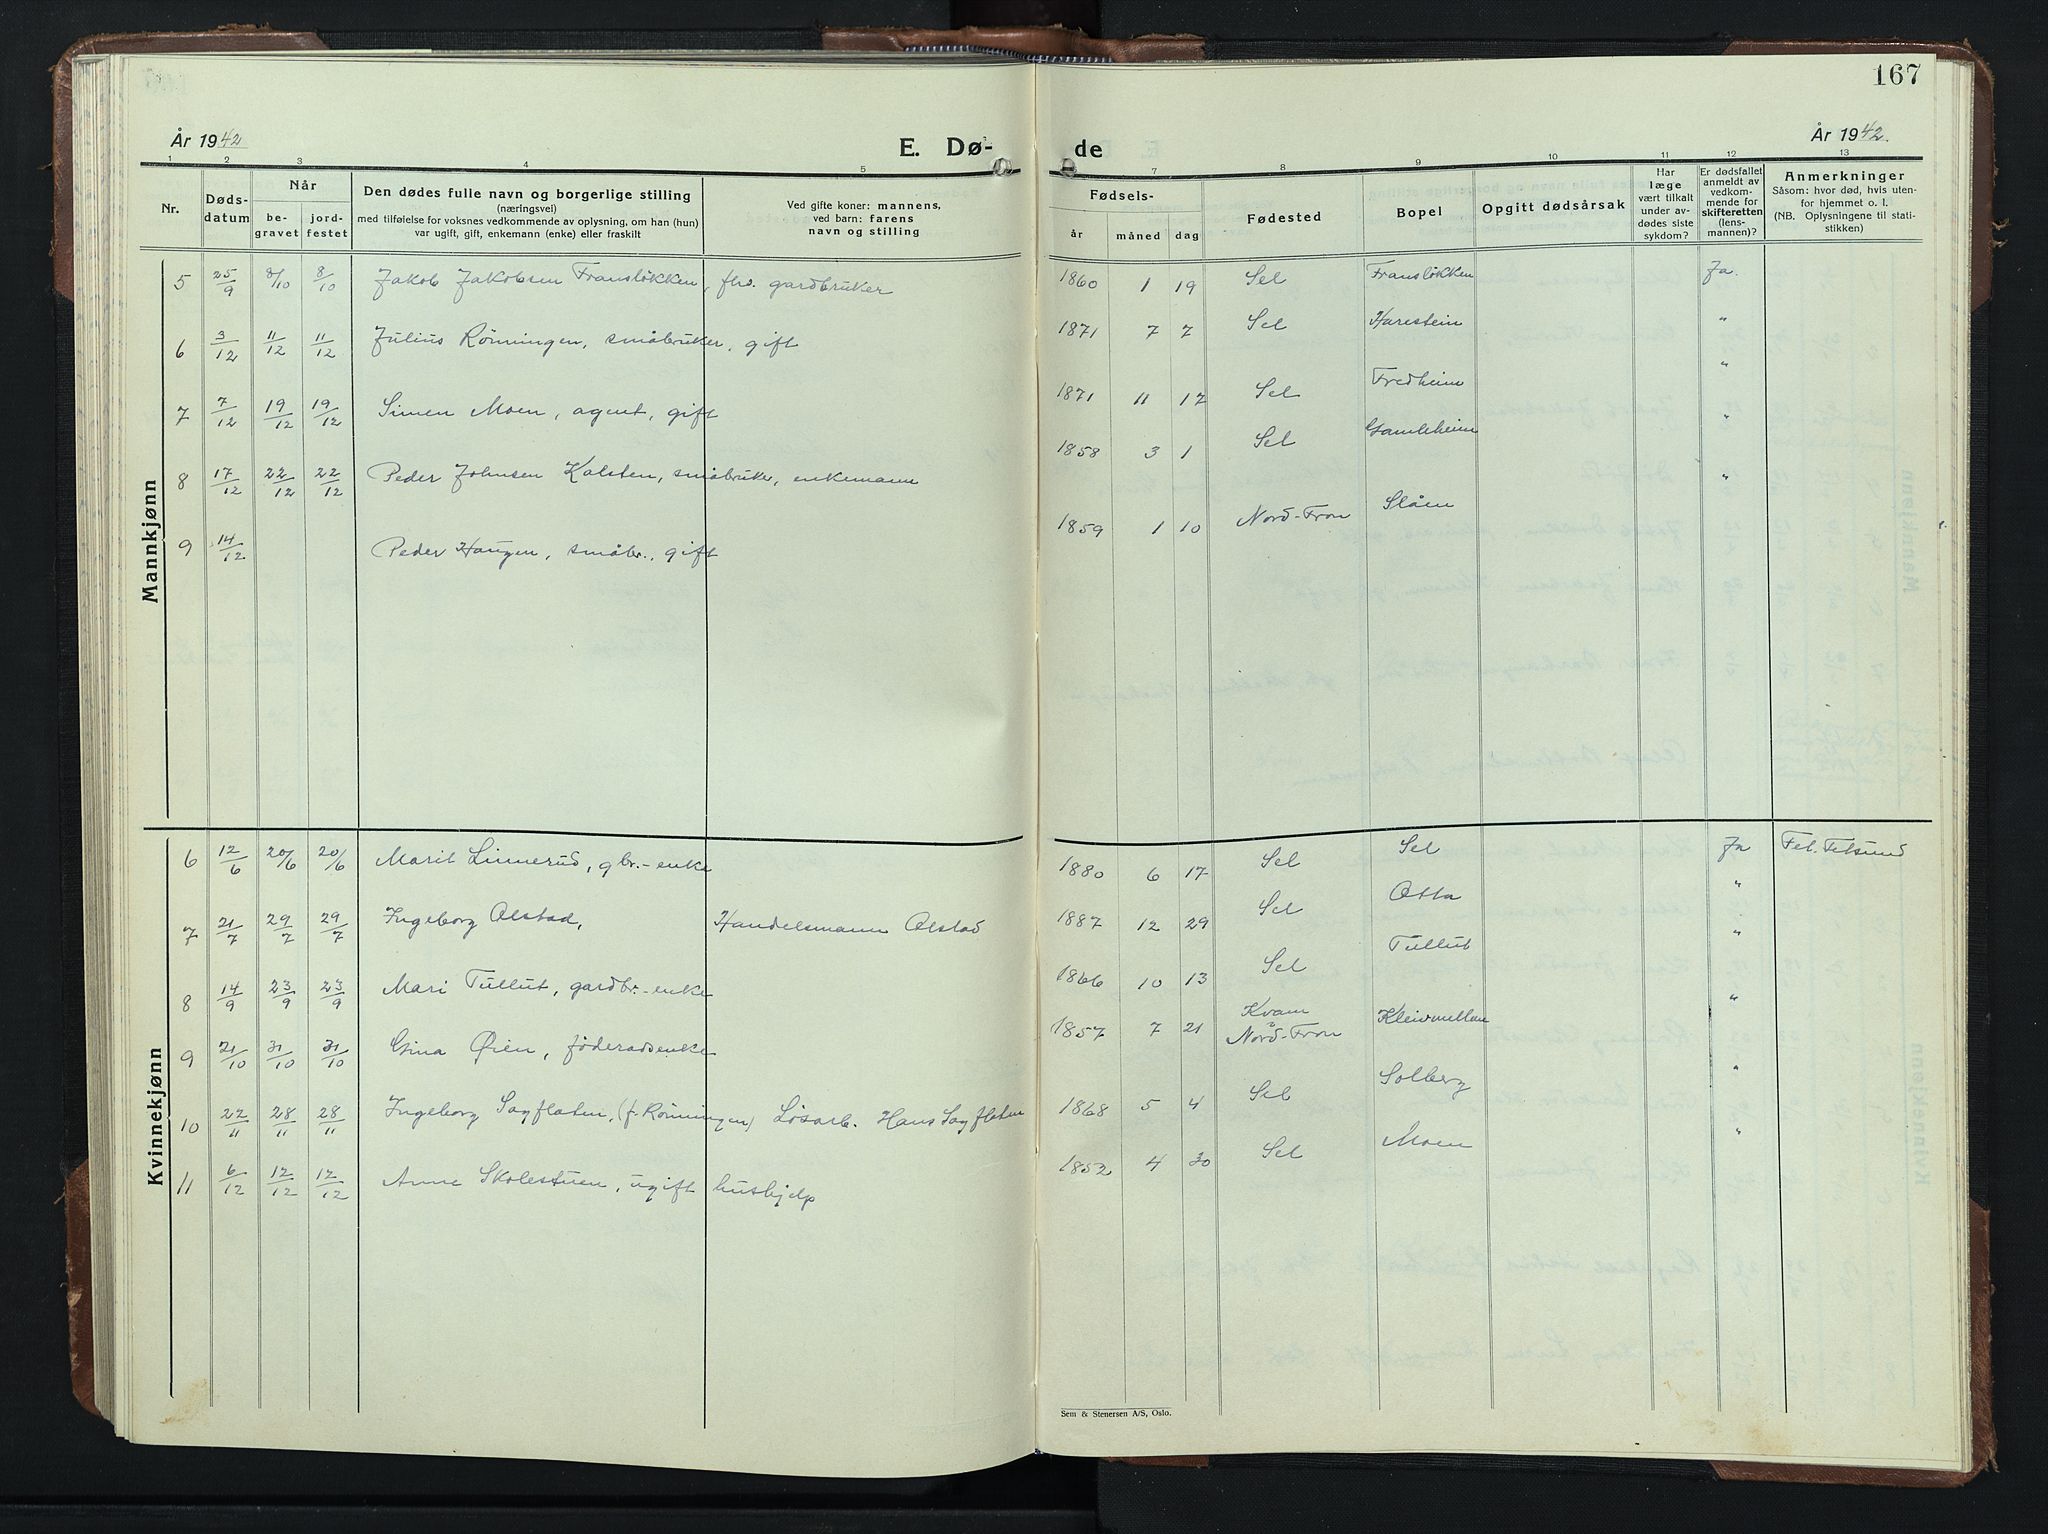 167
År 1942
E. Dø-
de
År 1942.
1 2 3 4 5 7 8 9 10 11 12 13
Nr.
Døds-
datum
Når
be-
gravet
jord-
festet
Den dødes fulle navn og borgerlige stilling
(næringsvei)
med tilføielse for voksnes vedkommende av oplysning, om han (hun)
var ugift, gift, enkemann (enke) eller fraskilt
Ved gifte koner: mannens,
ved barn: farens
navn og stilling
Fødsels-
år måned dag
Fødested
Bopel
Opgitt dødsårsak
Har
læge
vært tilkalt
under av-
dødes siste
sykdom?
Er dødsfallet
anmeldt av
vedkom-
mende for
skifteretten
(lens-
mannen)?
Anmerkninger
Såsom: hvor død, hvis uten-
for hjemmet o. l.
(NB. Oplysningene til stati-
stikken)
Mannkjønn
5 25/9 8/10 8/10 Jakob Jakobsen Fransløkken, fhv. gardbruker 1860 1 19 Sel Fransløkken Ja.
6 3/12 11/12 11/12 Julius Rønningen, småbruker, gift 1871 7 7 Sel Harestein "
7 7/12 19/12 19/12 Simen Moen, agent, gift 1871 11 17 Sel Fredheim "
8 17/12 22/12 22/12 Peder Johnsen Kolsten, småbruker, enkemann 1858 3 1 Sel Gamleheim "
9 14/12 Peder Haugen, småbr., gift 1859 1 10 Nord-Fron Slåen "
Kvinnekjønn
6 12/6 20/6 20/6 Marit Linnerud, gbr.-enke 1880 6 17 Sel Sel Ja Fet. Fetsund
7 21/7 29/7 29/7 Ingeborg Olstad, Handelsmann Olstad 1887 12 29 Sel Otta "
8 14/9 23/9 23/9 Mari Tullut, gardbr.-enke 1866 10 13 Sel Tullut "
9 21/10 31/10 31/10 Gina Øien, føderaadsenke 1857 7 21 Kvam Nord-Fron "
10 22/11 28/11 28/11 Ingeborg Sagflaten, (f. Rønningen) Løsarb. Hans Sagflaten 1868 5 4 Sel Solberg "
11 6/12 12/12 12/12 Anne Skolestuen, ugift hushjelp 1852 4 30 Sel Moen "
Sem & Stenersen A/S, Oslo.